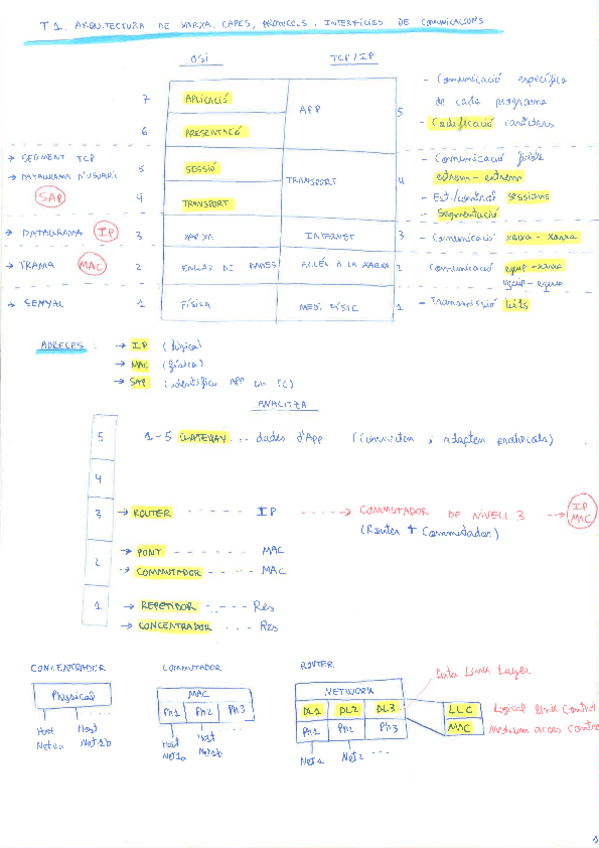 T1. ARQUITECTURA DE XARXA. CAPES, PROTOCOLS. INTERFÍCIES DE COMUNICACIONS
OSI TCP/IP
7 APLICACIÓ APP 5 - Comunicació específica
de cada programa
6 PRESENTACIÓ - Codificació caràcters
→ SEGMENT TCP
→ DATAGRAMA D'USUARI
SAP
5 SESSIÓ TRANSPORT 4 - Comunicació
extrem - extrem
- Est/control sessions
4 TRANSPORT - Segmentació
→ DATAGRAMA IP 3 XARXA INTERNET 3 - Comunicació xarxa - xarxa
→ TRAMA MAC 2 ENLLAÇ DE DADES ACCÉS A LA XARXA 2 Comunicació equip - xarxa
equip - equip
→ SENYAL 1 FÍSICA MEDI FÍSIC 1 - Transmissió bits
ADRECES: → IP (lògica)
→ MAC (física)
→ SAP (identifica APP en PC)
ANALITZA
5 1-5 GATEWAY ... dades d'App (Commuten i adapten protocols)
4
3 → ROUTER IP → COMMUTADOR DE NIVELL 3 → IP MAC
(Router + Commutador)
2 → PONT MAC
→ COMMUTADOR MAC
1 → REPETIDOR Res
→ CONCENTRADOR Res
CONCENTRADOR COMMUTADOR ROUTER
Data Link Layer
Physical MAC NETWORK
Ph1 Ph2 Ph3 DL1 DL2 DL3 LLC Logical Link Control
Ph1 Ph2 Ph3 MAC Medium acces Control
Host Net1a Host Net1b Host Net1a Host Net1b ... Net1 Net2 ...
1